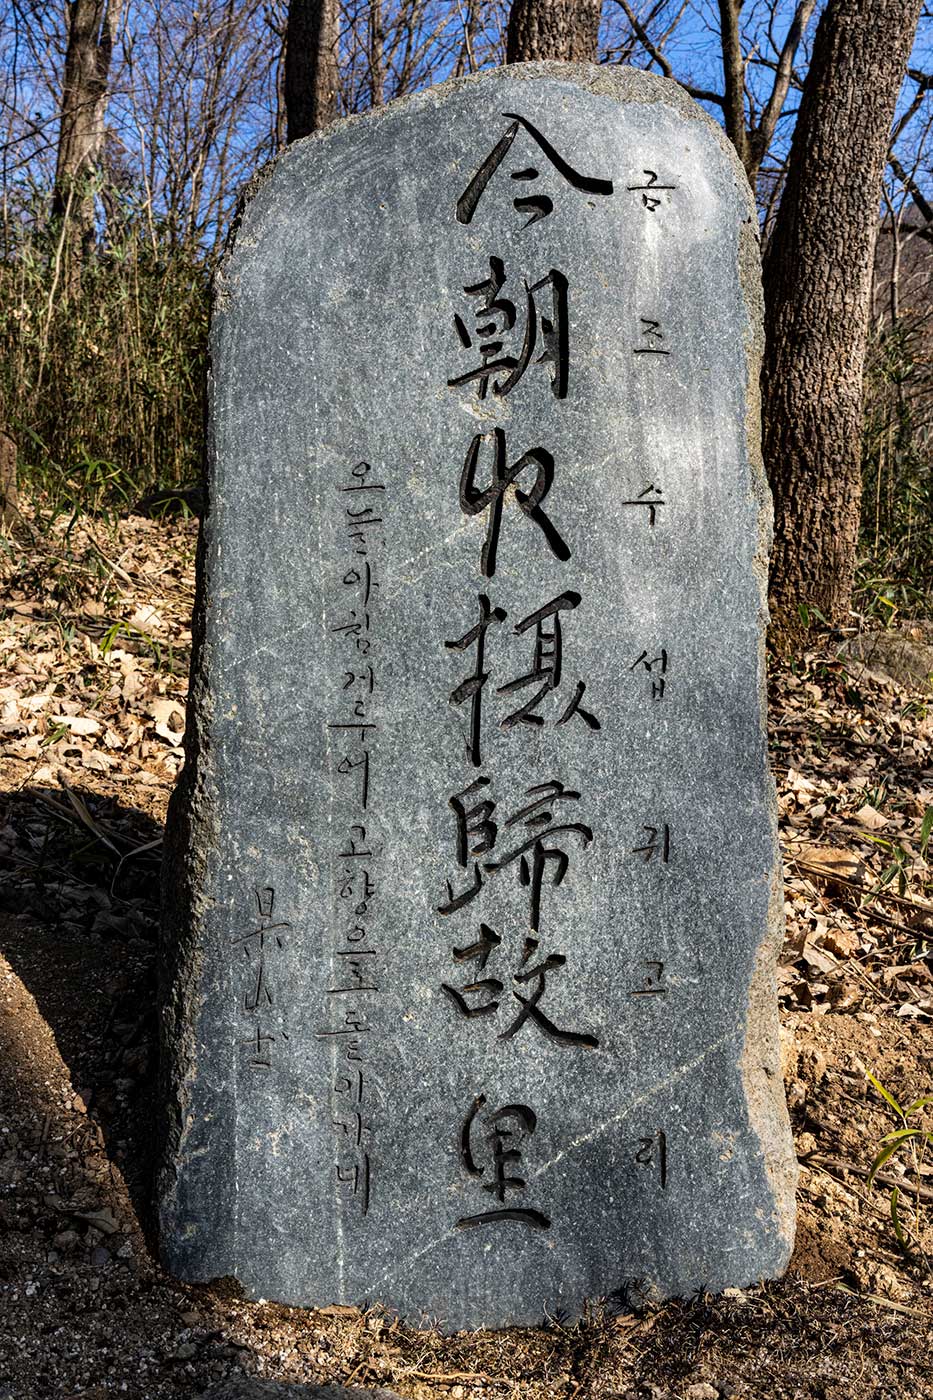 금조수섭귀고리
今朝收攝歸故里
오늘아침거두어고향으로돌아가네
杲山